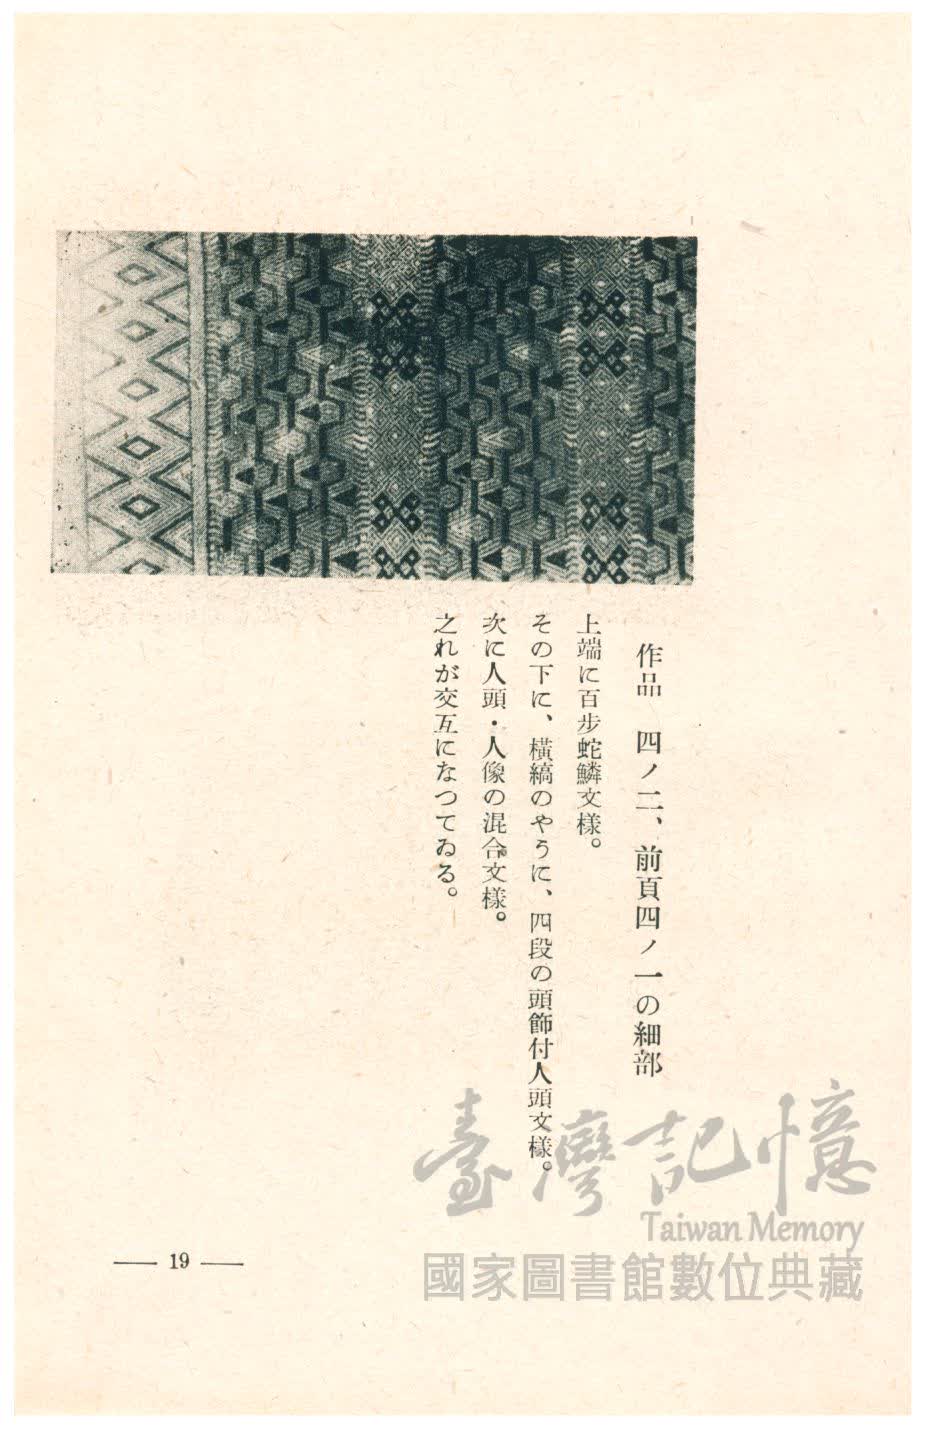 作品　四ノ二、前頁四ノ一の細部
上端に百步蛇鱗文樣。
その下に、橫縞のやうに、四段の頭飾付人頭文樣。
次に人頭・人像の混合文樣。
之れが交互になつてゐる。
— 19 —
臺灣記憶
Taiwan Memory
國家圖書館數位典藏